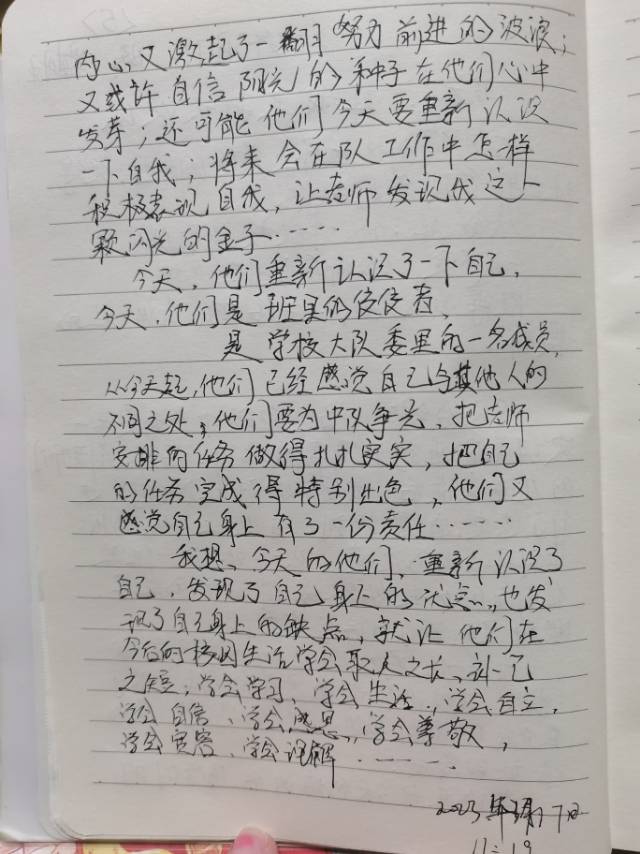 内心又激起了一翻努力前进的波浪；
又或许自信阳光的种子在他们心中
发芽；还可能他们今天要重新认识
一下自我；将来会在队工作中怎样
积极表现自我，让老师发现我这一
颗闪光的金子……
今天，他们重新认识了一下自己，
今天，他们是班里的佼佼者，
是学校大队委里的一名成员，
从今天起，他们已经感觉自己与其他人的
不同之处，他们要为中队争光，把老师
安排的任务做得扎扎实实，把自己
的任务完成得特别出色，他们又
感觉自己身上有了一份责任……
我想，今天的他们，重新认识了
自己，发现了自己身上的优点，也发
现了自己身上的缺点，就让他们在
今后的校园生活学会取人之长、补己
之短；学会学习、学会生活、学会自立，
学会自信、学会感恩，学会尊敬，
学会宽容、学会理解……
2023年 7日
11:19